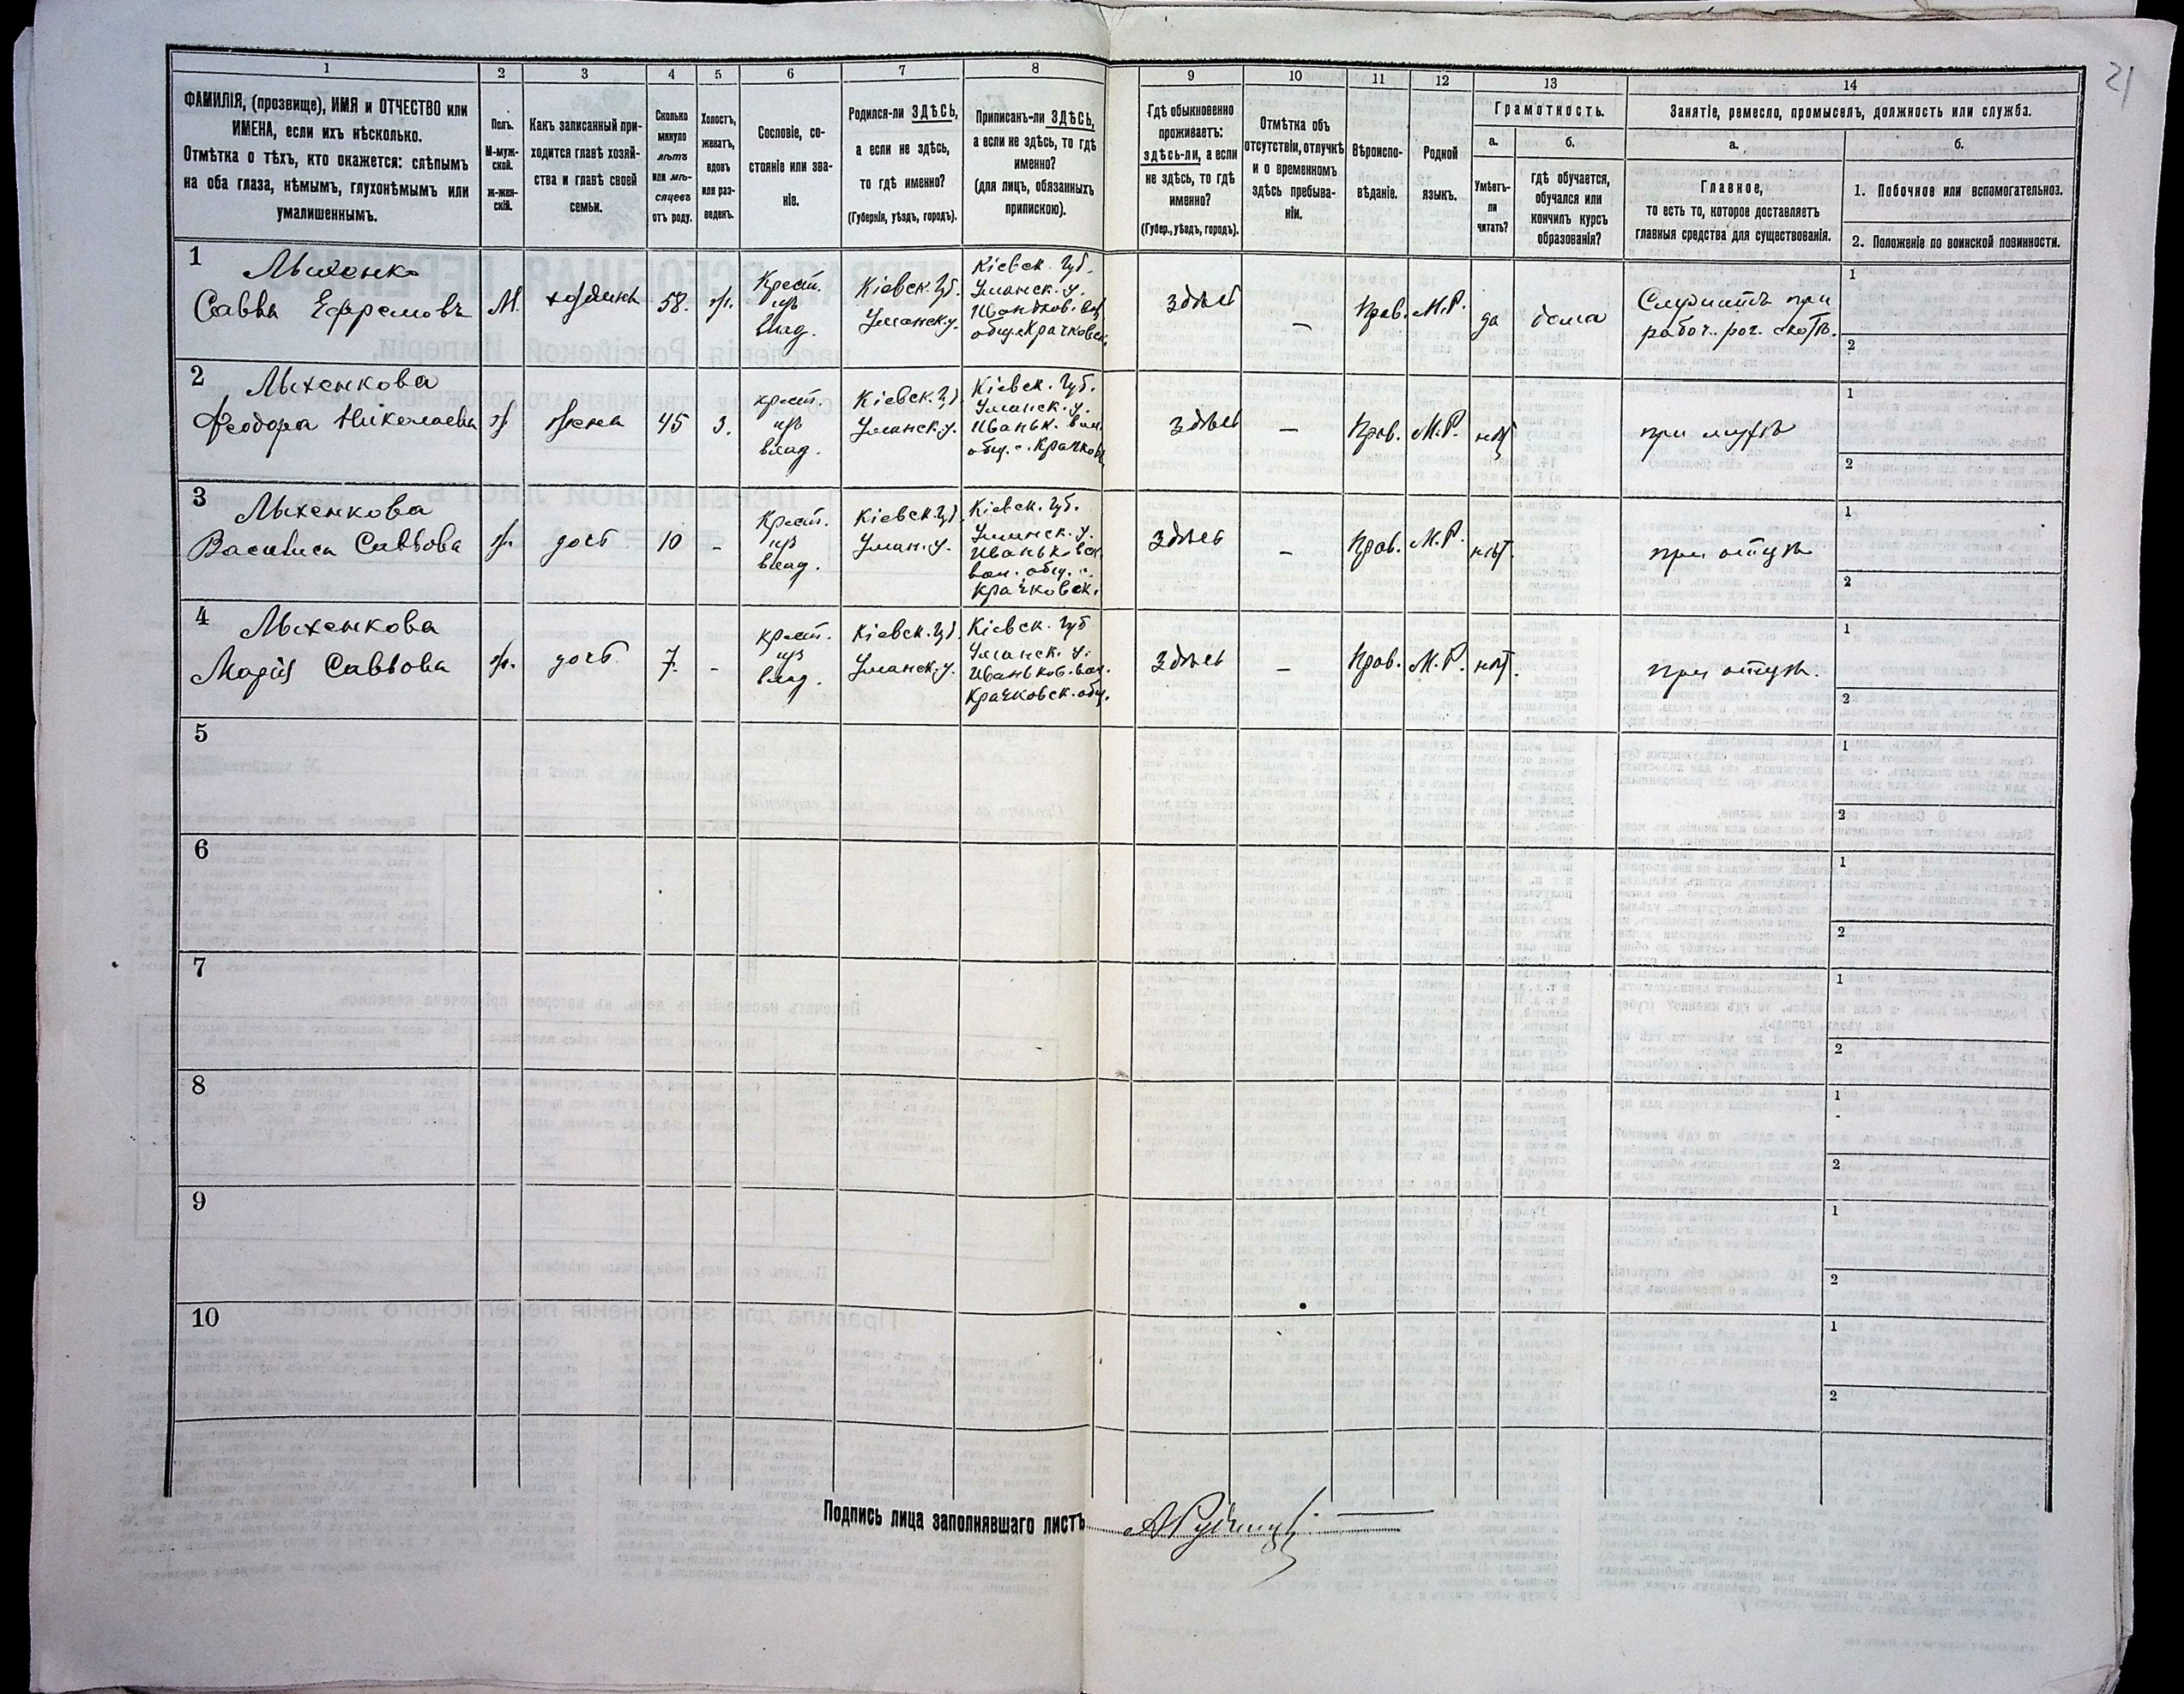 21
1 2 3 4 5 6 7 8 9 10 11 12 13 14
ФАМИЛІЯ, (прозвище), ИМЯ и ОТЧЕСТВО или
ИМЕНА, если ихъ нѣсколько.
Отмѣтка о тѣхъ, кто окажется: слѣпымъ
на оба глаза, нѣмымъ, глухонѣмымъ или
умалишеннымъ.
Полъ.
М-муж-
ской.
Ж-жен-
скій.
Какъ записанный при-
ходится главѣ хозяй-
ства и главѣ своей
семьи.
Сколько
минуло
лѣтъ
или мѣ-
сяцевъ
отъ роду.
Холостъ,
женатъ,
вдовъ
или раз-
веденъ.
Сословіе, со-
стояніе или зва-
ніе.
Родился-ли ЗДѢСЬ,
а если не здѣсь,
то гдѣ именно?
(Губернія, уѣздъ, городъ).
Приписанъ-ли ЗДѢСЬ,
а если не здѣсь, то гдѣ
именно?
(для лицъ, обязанныхъ
припискою).
Гдѣ обыкновенно
проживаетъ:
здѣсь-ли, а если
не здѣсь, то гдѣ
именно?
(Губер., уѣздъ, городъ).
Отмѣтка объ
отсутствіи, отлучкѣ
и о временномъ
здѣсь пребыва-
ніи.
Вѣроиспо-
вѣданіе.
Родной
языкъ.
Грамотность.
а.
Умѣетъ-
ли
читать?
б.
гдѣ обучается,
обучался или
кончилъ курсъ
образованія?
Занятіе, ремесло, промыселъ, должность или служба.
а.
Главное,
то есть то, которое доставляетъ
главныя средства для существованія.
б.
1. Побочное или вспомогательное.
2. Положеніе по воинской повинности.
1
Савва Ефремовъ
М.
58.
ж.
Крест.
изъ
влад.
Кіевск. Губ.
Уманск. у.
Кіевск. Губ.
Уманск. у.
здѣсь
—
Прав.
М.Р.
да
дома
Служитъ при
рабоч. рог. скотѣ.
1
2
2
Ѳеодора Николаевна
ж
жена
45
З.
крест.
изъ
влад.
Кіевск. Губ.
Уманск. у.
Кіевск. Губ.
Уманск. у.
здѣсь
—
Прав.
М.Р.
нѣт
при мужѣ
1
2
3
Василиса Саввова
ж.
дочь
10
-
Крест.
изъ
влад.
Кіевск. Губ.
Уман. у.
Кіевск. Губ.
Уманск. у.
Иваньковск.
вол. общ. с.
Крачковск.
здѣсь
—
Прав.
М.Р.
нѣт.
при отцѣ
1
2
4
Марія Саввова
ж.
дочь
7.
-
крест.
изъ
влад.
Кіевск. Губ.
Уманск. у.
Кіевск. Губ
Уманск. у.
Иваньков. вол.
Крачковск. общ.
здѣсь
—
Прав.
М.Р.
нѣт.
при отцѣ.
1
2
5
1
2
6
1
2
7
1
2
8
1
2
9
1
2
10
1
2
Подпись лица заполнявшаго листъ